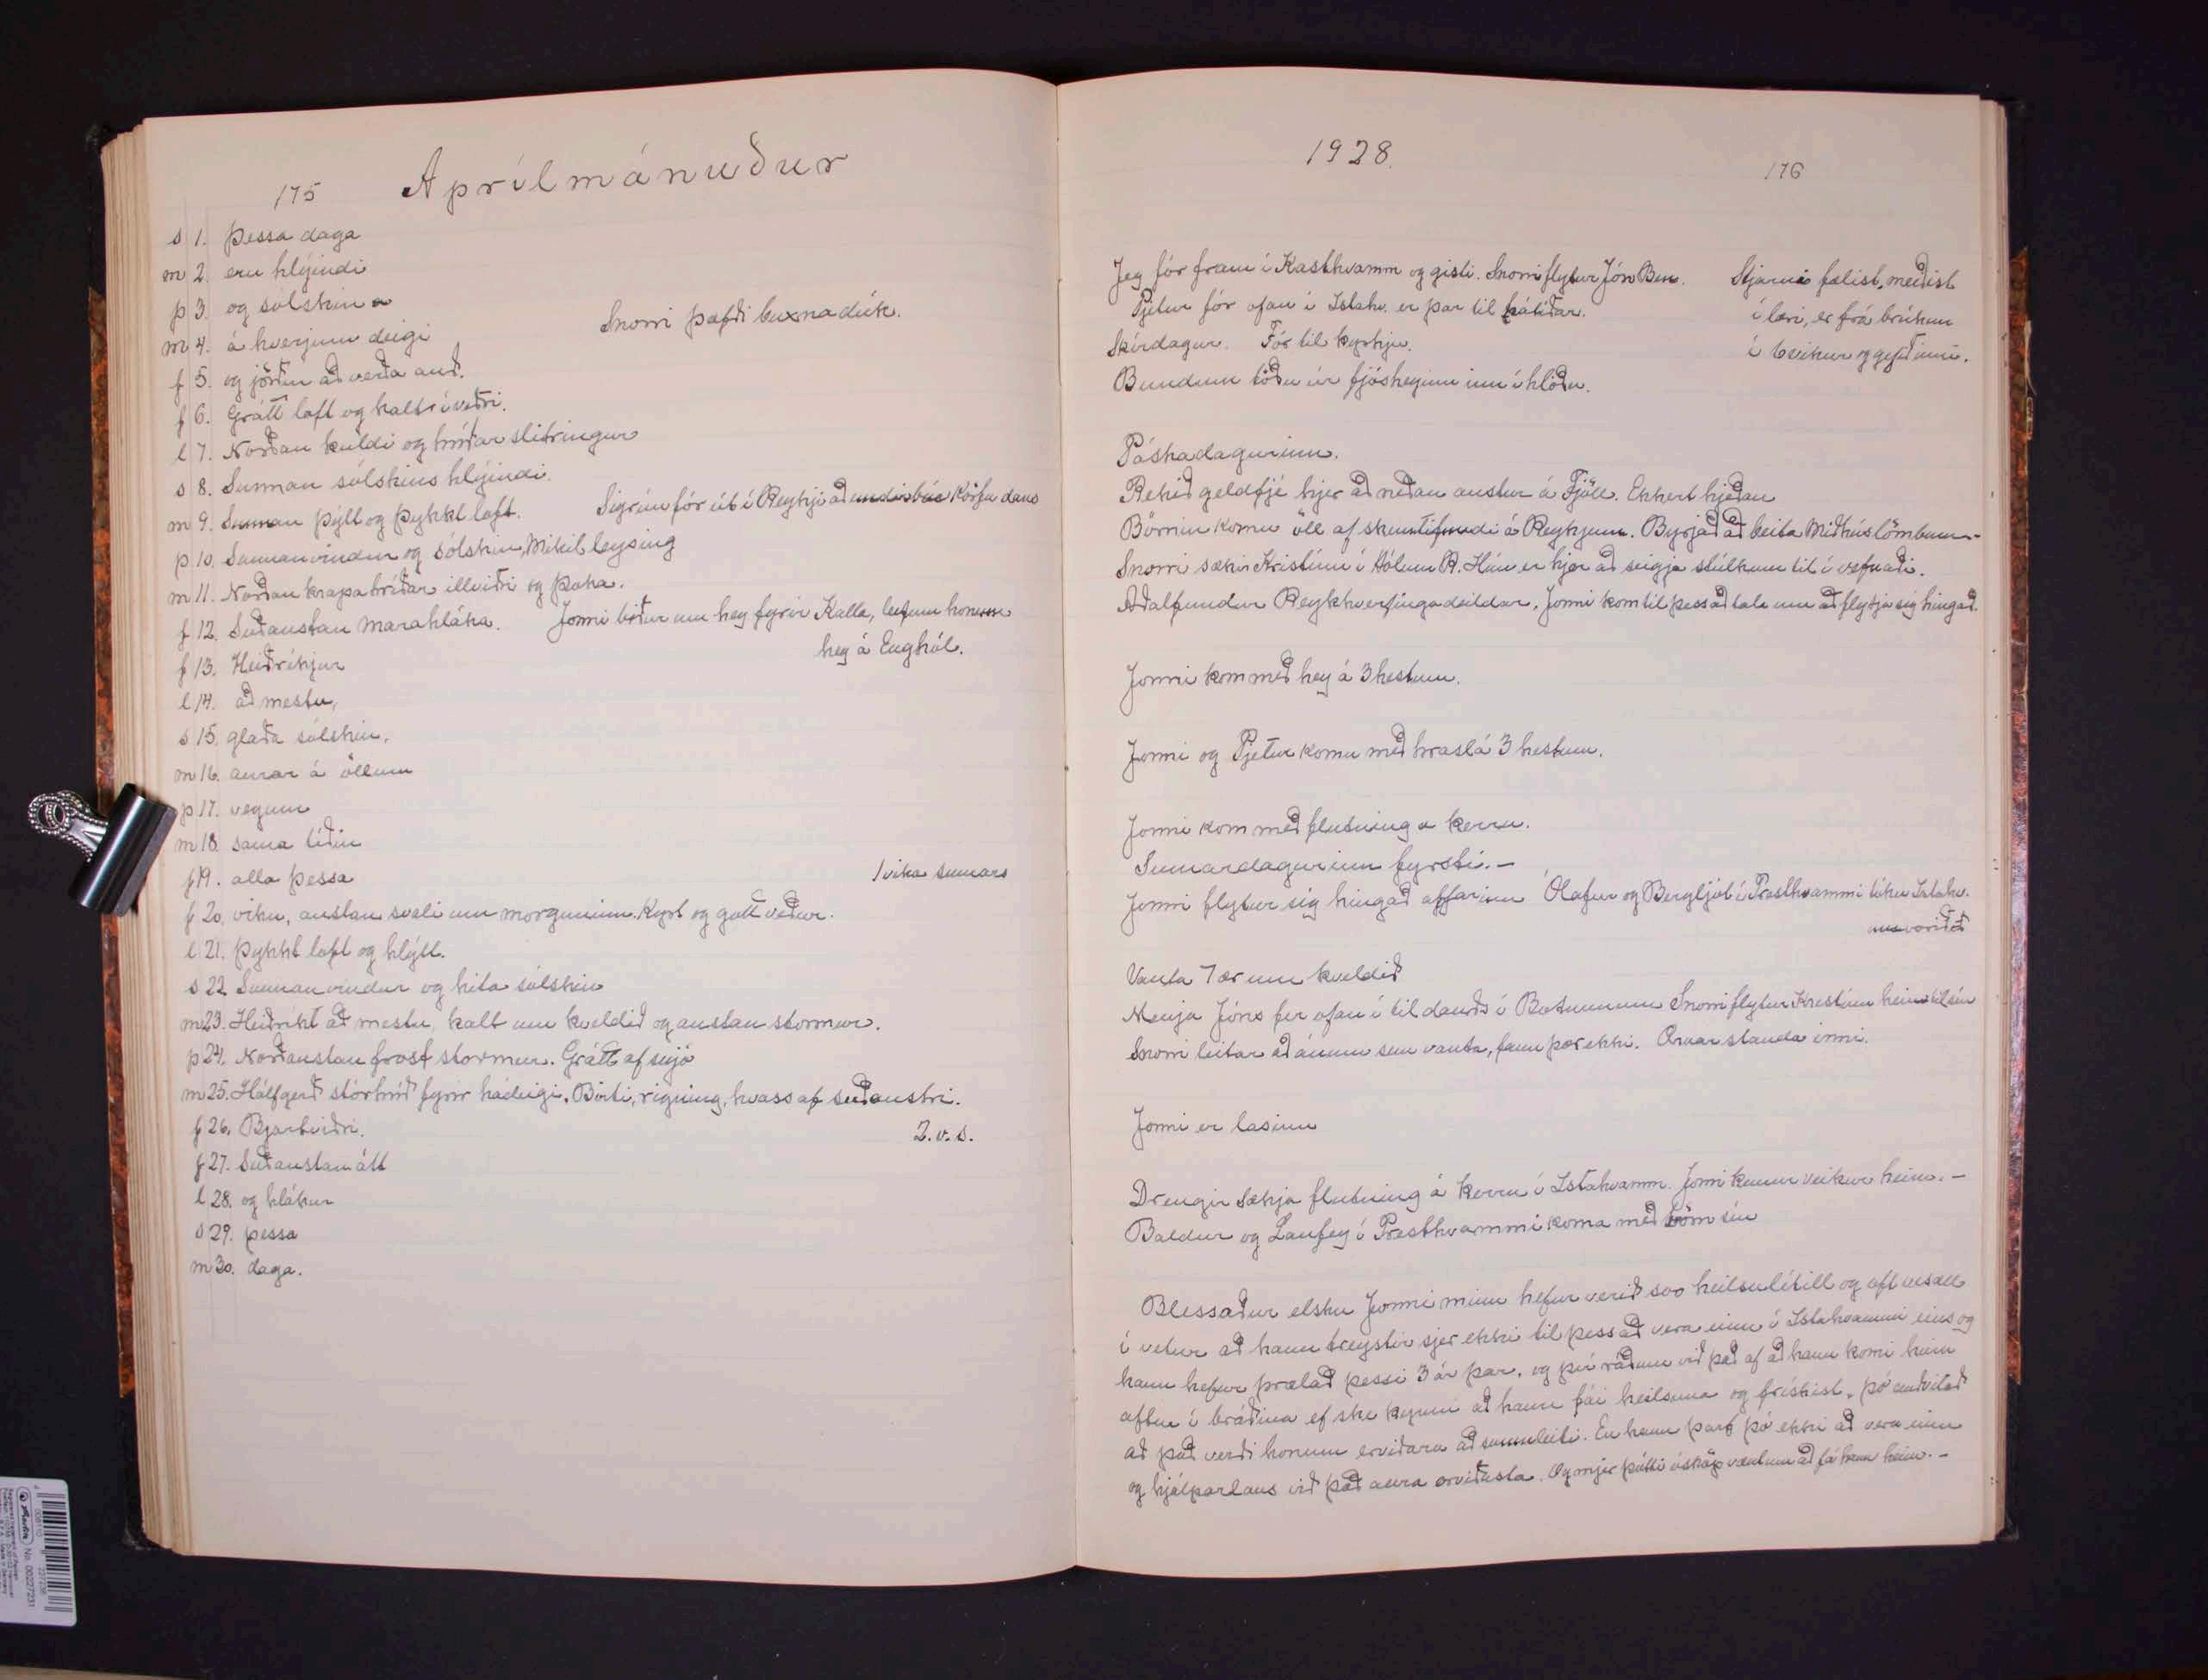 175 Aprílmánuður
s 1. þessa daga
m 2. eru hlýindi
þ 3. og sólskin
m 4. á hverjum deigi Snorri þæfði buxnadúk.
f 5. og jörðin að verða auð.
f 6. Grátt loft og kaltr í veðri.
l 7. Norðan kuldi og hríðar slitringur
s 8. Sunnan sólskins hlýindi.
m 9. Sunnan þýtt og þykkt loft. Sigrún fór út í Reykji að Körfu dans
þ 10. Sunnanvindur og sólskin, Mikil leysing
m 11. Norðan krapahríðar illviðri og þoka.
f 12. Suðaustan marahláka. Jonni biður um hey fyrir Kalla, leifum honum
hey á Enghól.
f 13. Heiðríkjur
l 14. að mestu,
s 15. glaða sólskin.
m 16. aurar á öllum
þ 17. vegum
m 18. sama tíðin
f 19. alla þessa 1 vika sumars
f 20. viku, austan svali um morguninn. Kyrt og gott veður.
l 21. þykkt loft og hlýtt.
s 22. Sunnanvindur og hita sólskin
m 23. Heiðríkt að mestu, kalt um kveldið og austan stormur.
þ 24. Norðaustan frost stormur. Grátt af snjó
m 25. Hálfgerð stórhríð fyrir hádeigi. Birti, rigning, hvass af suðaustri.
f 26. Bjartviðri. 2. v. s.
f 27. Suðaustan átt
l 28. og hlákur
s 29. þessa
m 30. daga.
1928. 176
Jeg fór fram í Kasthvamm og gisti. Snorri flytur Jón Ben. Stjarni fælist, meiðist
Pjetur fór ofan í Istahv. er þar til hátíðar. í læri, er frá brúkun
Skírdagur. Fór til kyrkju. í 6 vikur og gjöf inni.
Bundum töðu úr fjósheyinu inn í hlöðu.
Páskadagurinn.
Rekið geldfje hjer að neðan austur á Fjöll. Ekkert hjeðan
Börnin komu öll af skemtifundi á Reykjum. Byrjað að beita Miðhúslömbum-
Snorri sækir Kristínu í Hólum R. Hún er hjer að seigja stúlkum til í vefnaði.
Aðalfundur Reykhverfingadeildar. Jonni kom til þess að tala um að flytja sig hingað.
Jonni kom með hey á 3 hestum.
Jonni og Pjetur komu með hrasl á 3 hestum.
Jonni kom með flutning á kerru.
Sumardagurinn fyrsti.-
Jonni flytur sig hingað alfarinn Ólafur og Bergljót í Presthvammi tóku Istahv.
Vanta 7 ær um kveldið
Menja Jóns fer ofan í til dauðs í Botnunum Snorri flytur Kristínu heim til sín
Snorri leitar að ánum sem vanta, fann þær ekki. Ærnar standa inni.
Jonni er lasinn
Drengir sækja flutning á kerru í Istahvamm. Jonni kemur veikur heim.-
Baldur og Laufey í Presthvammi koma með börn sín
Blessaður elsku Jonni minn hefur verið svo heilsulítill og oft vesæll
í vetur að hann treystir sjer ekki til þess að vera einn í Istahvammi eins og
hann hefur þrælað þessi 3 ár þar. og því ráðum við það af að hann komi heim
aftur í bráðina ef ske kynni að hann fái heilsuna og frískist. þó auðvitað
að það verði honum erviðara að sumuleiti. En hann þarf þó ekki að vera einn
og hjálparlaus við það allra erviðasta. Og mjer þótti ósköp vænt um að fá hann heim.-